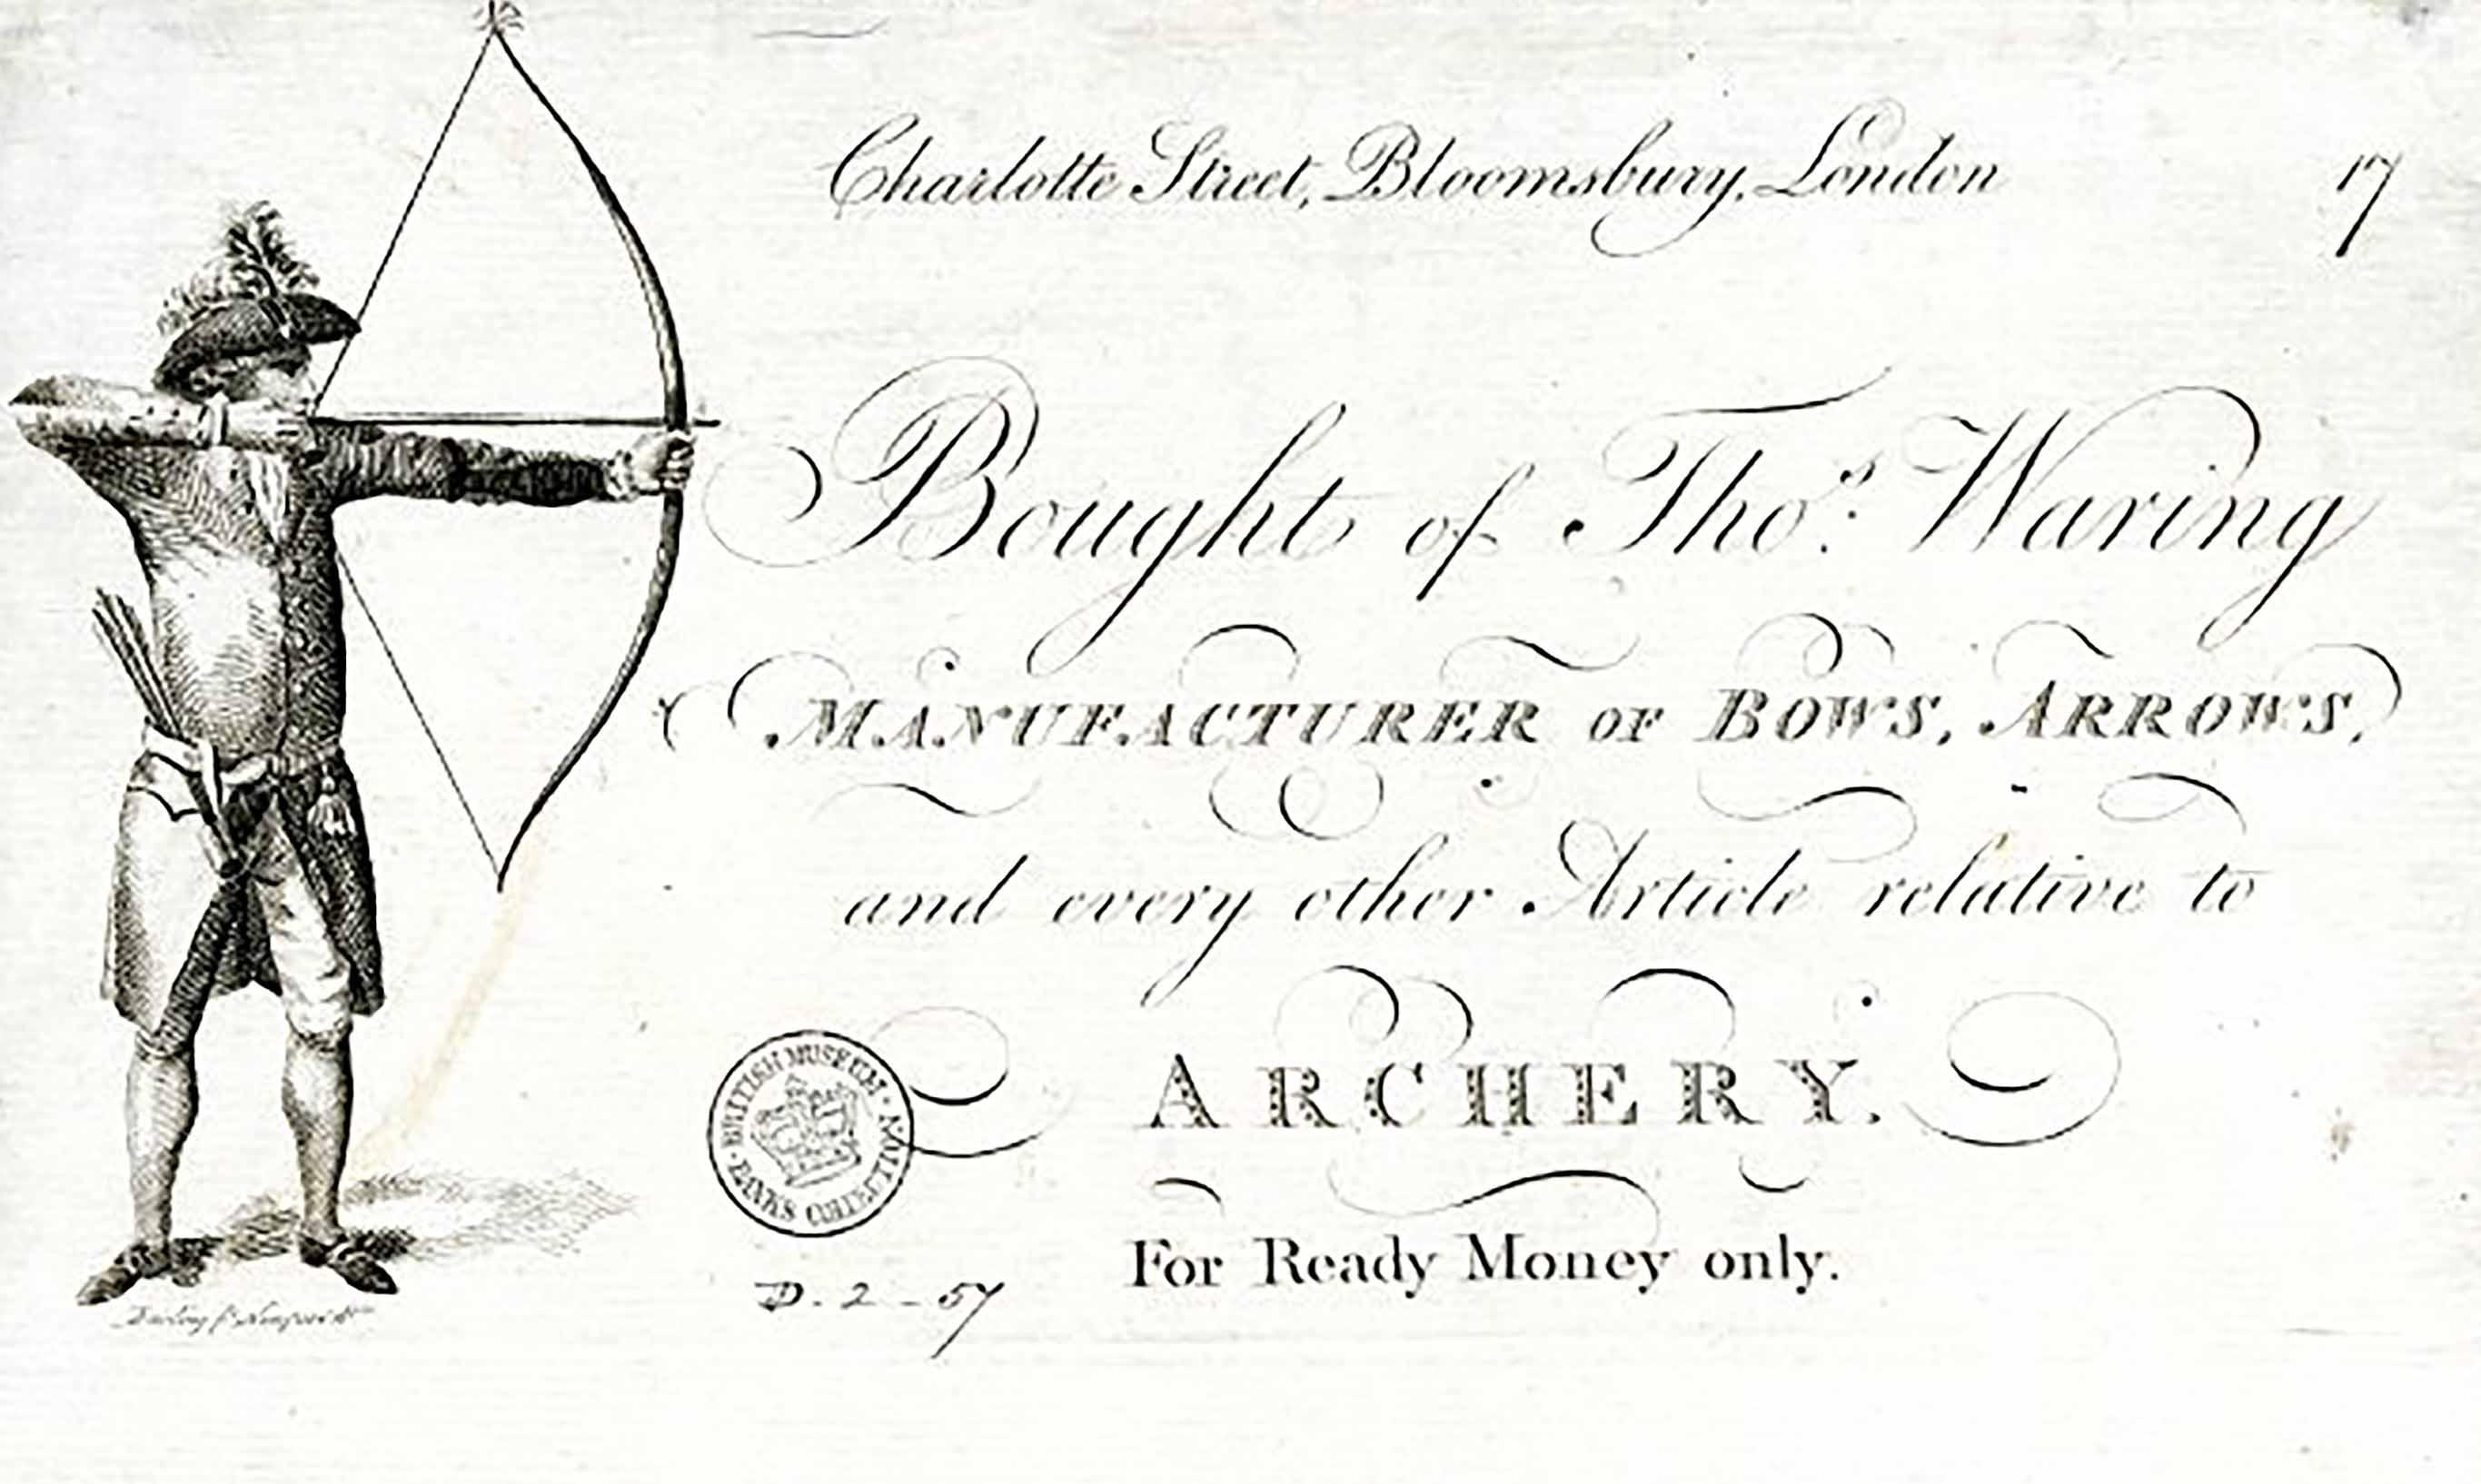 Charlotte Street, Bloomsbury, London 17
Bought of Tho.s Waring
MANUFACTURER OF BOWS, ARROWS,
and every other Article relative to
ARCHERY.
For Ready Money only.
BRITISH MUSEUM
BANKS COLLECTION
D. 2 - 57
Darling